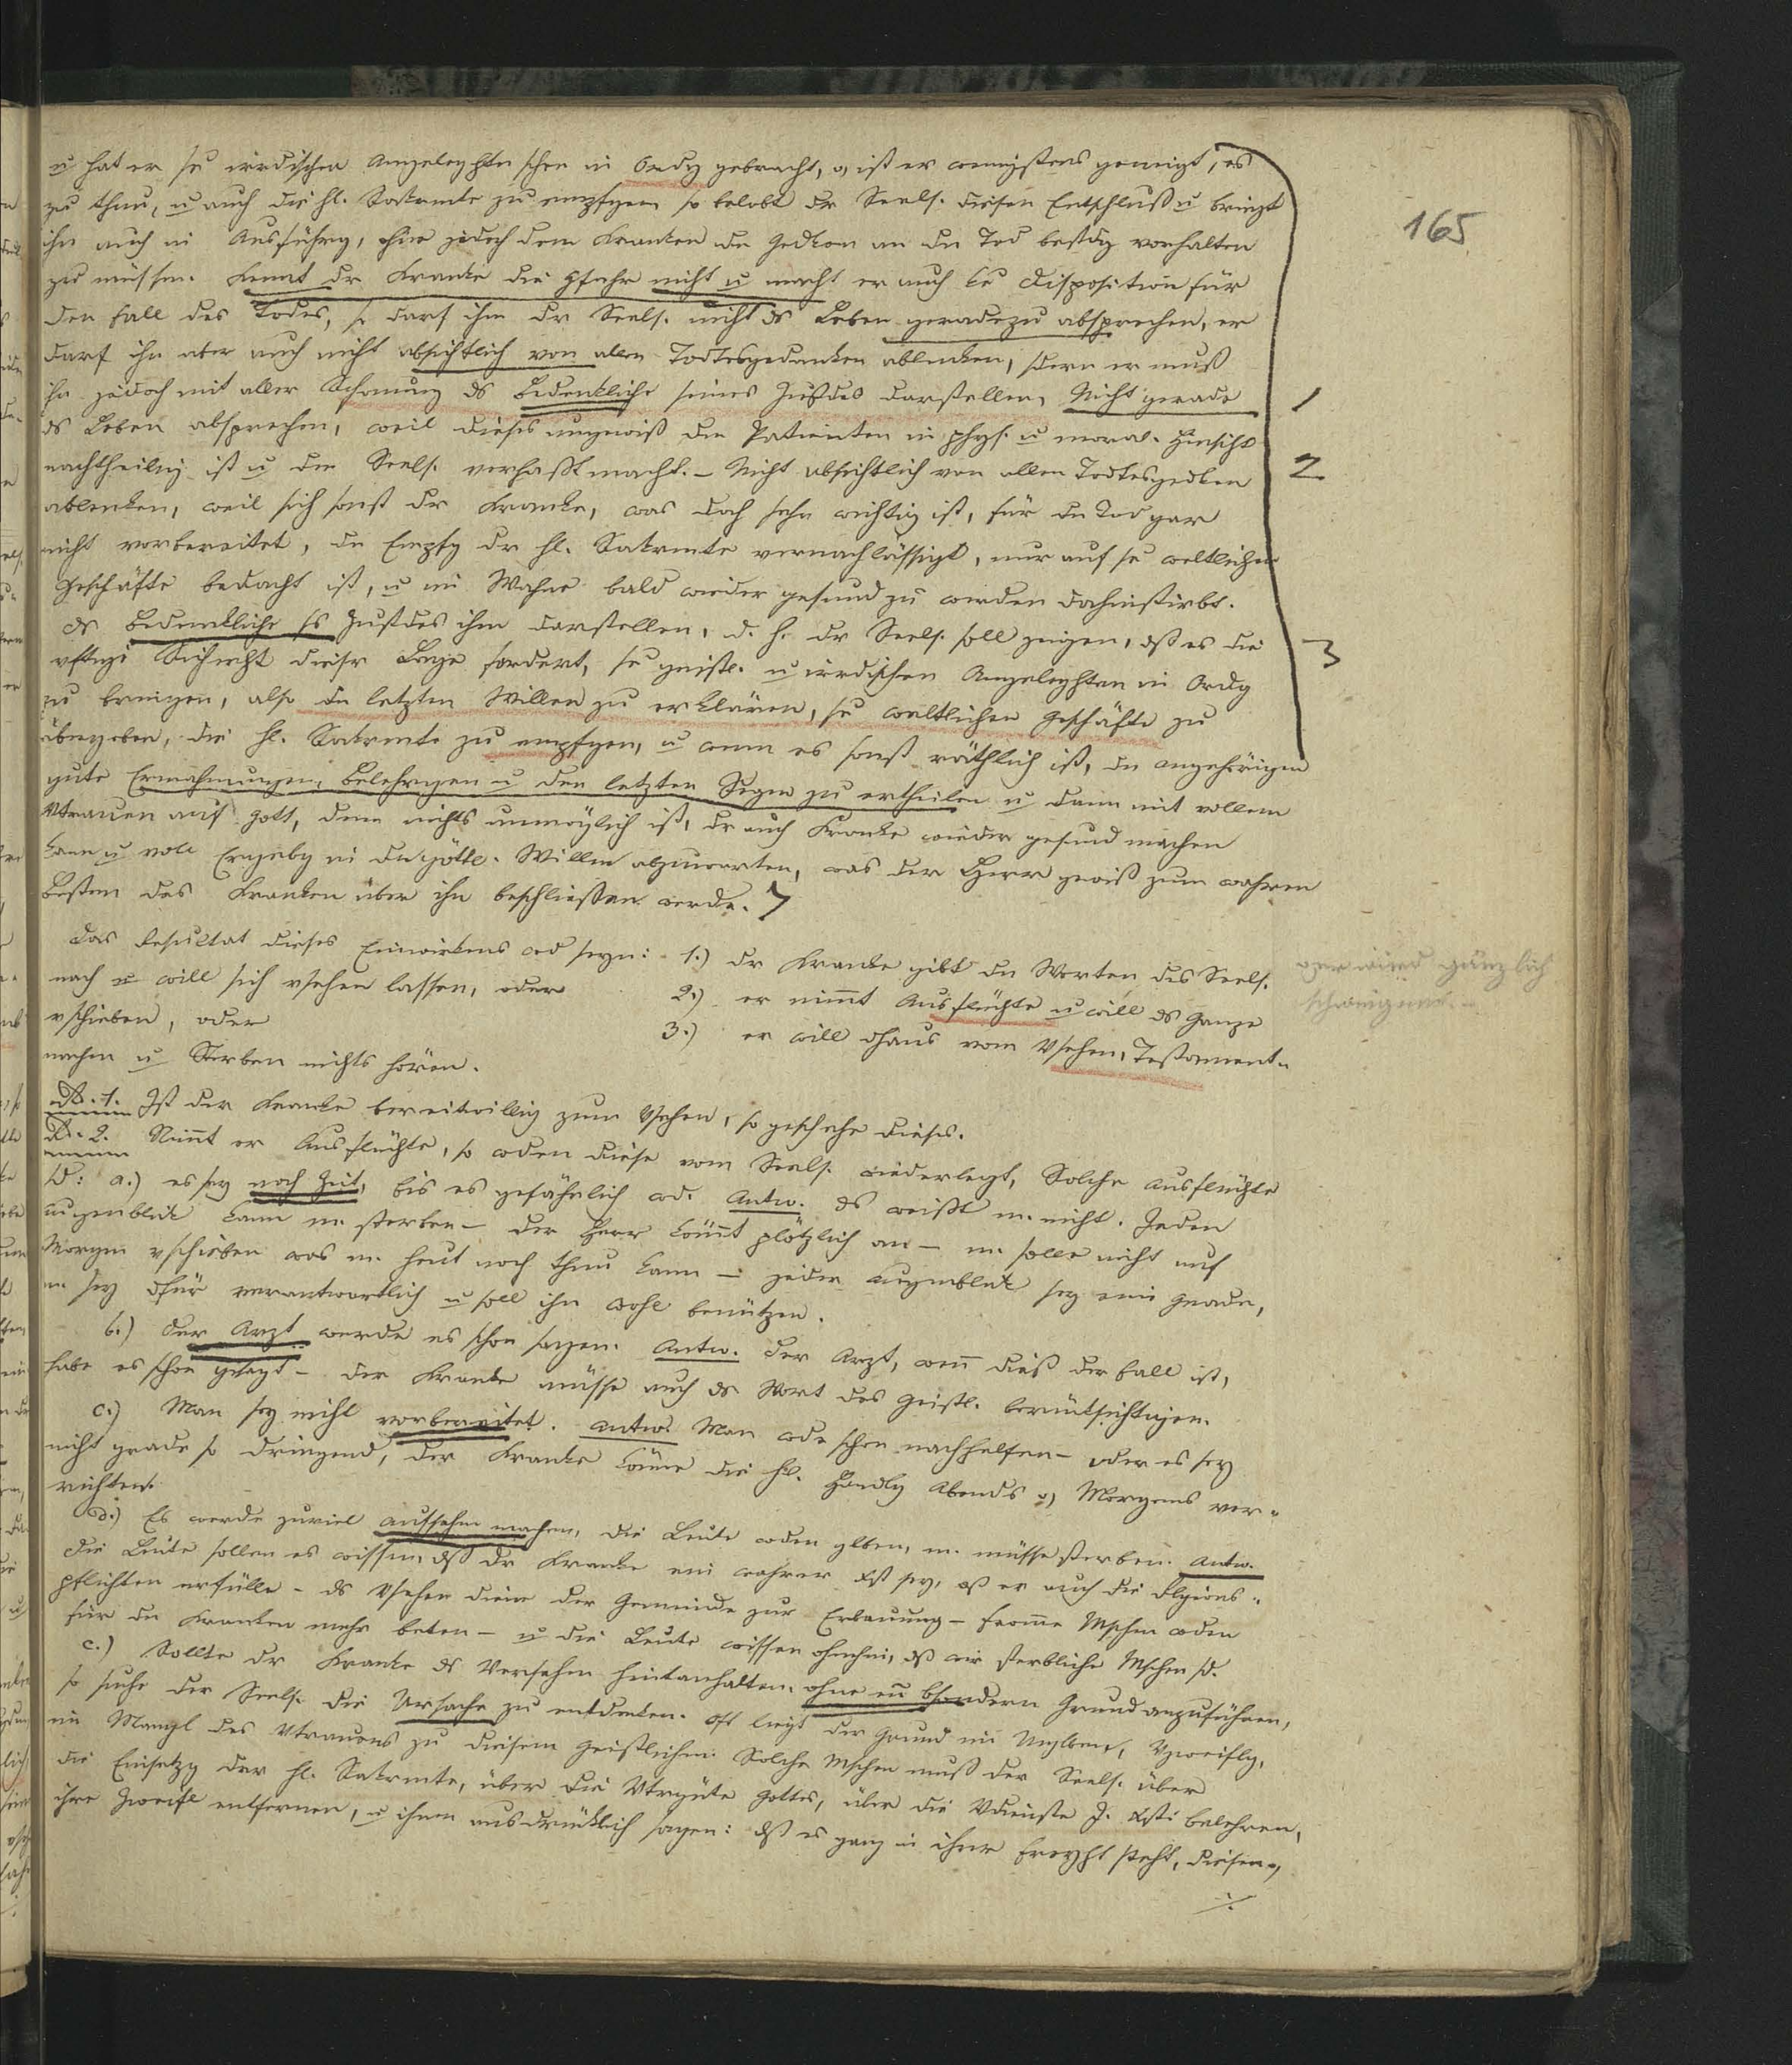 165
u hat er se irrdischen Angeleghten schon in Ordg gebracht, o, ist er wenigstens geneigt, es
zu thun, u auch die hl. Sakrmte zu empfgen so belobt dr Seels. diesen Entschluß u bringt
ihn auch in Ausführg, ohne jedoch dem Kranken dn Gedken an dn Tod bestdg vorhalten
zu müssen. Kennt dr Kranke die Gfahr nicht u macht er auch ke Disposition für
den Fall des Todes, so darf ihm dr Seels. nicht ds Leben geradezu absprechen, er
darf ihn aber auch nicht absichtlich von allen Todtesgedanken ablenken, sdern er muß
ihm jedoch mit aller Schonung ds Bedenkliche seines Zustdes darstellen. Nicht gerade 1
ds Leben absprechen, weil dieses ungewiß den Patienten in phys. u moral. Hinsicht
nachtheilig ist u den Seels. verhaßt macht. – Nicht absichtlich von allen Todtesgedken 2
ablenken, weil sich sonst dr Kranke, was doch sehr wichtig ist, für dn Tod gar
nicht vorbereitet, dn Empfg dr hl. Sakrmte vernachlässigt, nur auf se weltlichen
Geschäfte bedacht ist, u im Wahne bald wieder gesund zu werden dahinstirbt.
ds Bedenkliche ss Zustdes ihm darstellen, d. h. dr Seels. soll zeigen, dß es die 3
Lage fordert, se geistl. u irrdischen Angeleghten in Ordg
zu bringen, also dn letzten Willen zu erklären, se weltlichen Geschäfte zu
übergeben, die hl. Sakrmte zu empfgen, u wenn es sonst räthlich ist, dn Angehörigen
gute Ermahnungen, Belehrgen u den letzten Segen zu ertheilen u dann mit vollem
Vtrauen auf Gott, dem nichts unmöglich ist, dr auch Kranke wieder gesund machen
kann u voll Ergebg in dn göttl. Willen abzuwarten, was der Herr gewiß zum wahren
Besten des Kranken über ihn beschliessen werde.
Das Resultat dieses Einwirkens wd seyn: 1.) dr Kranke gibt dn Worten des Seels.
nach u will sich vsehen lassen, oder 2.) er nimmt Ausflüchte u will ds Ganze
vschieben, oder 3.) er will dhaus vom Vsehen, Testament-
machen u Sterben nichts hören.
gänzlich
schweigen.
Ad. 1. Ist der Kranke bereitwillig zum Vsehen, so geschehe dieses.
Ad. 2. Nimmt er Ausflüchte, so wden diese vom Seels. wiederlegt, Solche Ausflüchte
sd: a.) es sey noch Zeit, bis es gefährlich wd. Antw. ds weißt m. nicht. Jeden
Augenblick kann m. sterben – der Herr kömmt plötzlich an – m. solle nicht auf
Morgen vschieben was m. heut noch thun kann – jeder Augenblick sey eine Gnade,
m. sey dfür verantwortlich u soll ihn wohl benützen.
b.) Der Arzt werde es schon sagen. Antw. Der Arzt, wenn dieß der Fall ist,
habe es schon gesagt – der Kranke müsse auch ds Wort des Geistl. berücksichtigen.
c.) Man sey nicht vorbereitet. Antw. Man wde schon nachhelfen – oder es sey
nicht grade so dringend, der Kranke könne die hl. Handlg Abends o, Morgens ver-
richten.
d.) Es werde zuviel Aufsehen machen, die Leute wden glben, m. müsse sterben. Antw.
Die Leute sollen es wissen, dß dr Kranke ein wahrer Xst sey, dß er auch die Rlgions-
pflichten erfülle – ds Vsehen diene der Gemeinde zur Erbauung – fromme Mschen wden
für dn Kranken mehr beten – u die Leute wissen ohnehin, dß wir sterbliche Mschen sd.
e.) Sollte dr Kranke ds Versehen hintanhalten, ohne ein bsondern Grund anzuführen,
so suche der Seels. die Ursache zu entdecken. Oft liegt der Grund im Unglben, Vzweiflg,
im Mangel des Vtrauens zu diesem Geistlichen. Solche Mschen muß der Seels. über
die Einsetzg der hl. Sakrmte, über die Vtrgüte Gottes, über die Vdienste J. Xsti belehren,
ihre Zweifl entfernen, u ihnen ausdrücklich sagen: dß es ganz in ihrer Freyht steht, diesen o,
./.